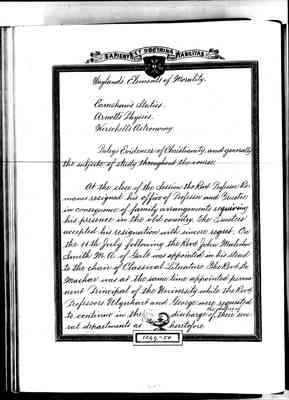 SAPIENTIA ET DOCTRINA STABILITAS
Wayland's Elements of Morality.
Earnshaw's Statics
Arnott's Physics
Herschell's Astronomy
Paley's Evidences of Christianity, and generally
the subjects of study throughout the course.
At the close of the Session the Revd Professor Ro-
mans resigned his office of Professor and Trustee
in consequence of family arrangements requiring
his presence in the old country. The Trustees
accepted his resignation with sincere regret. On
the 11th July following the Revd John Malcolm
Smith M. A. of Galt was appointed in his stead
to the chair of Classical Literature. The Revd Dr
Machar was at the same time appointed perma-
nent Principal of the University while the Revd
Professors Urquhart and George were requested
to continue in the discharge of their sev-
eral departments as heretofore.
1849-50